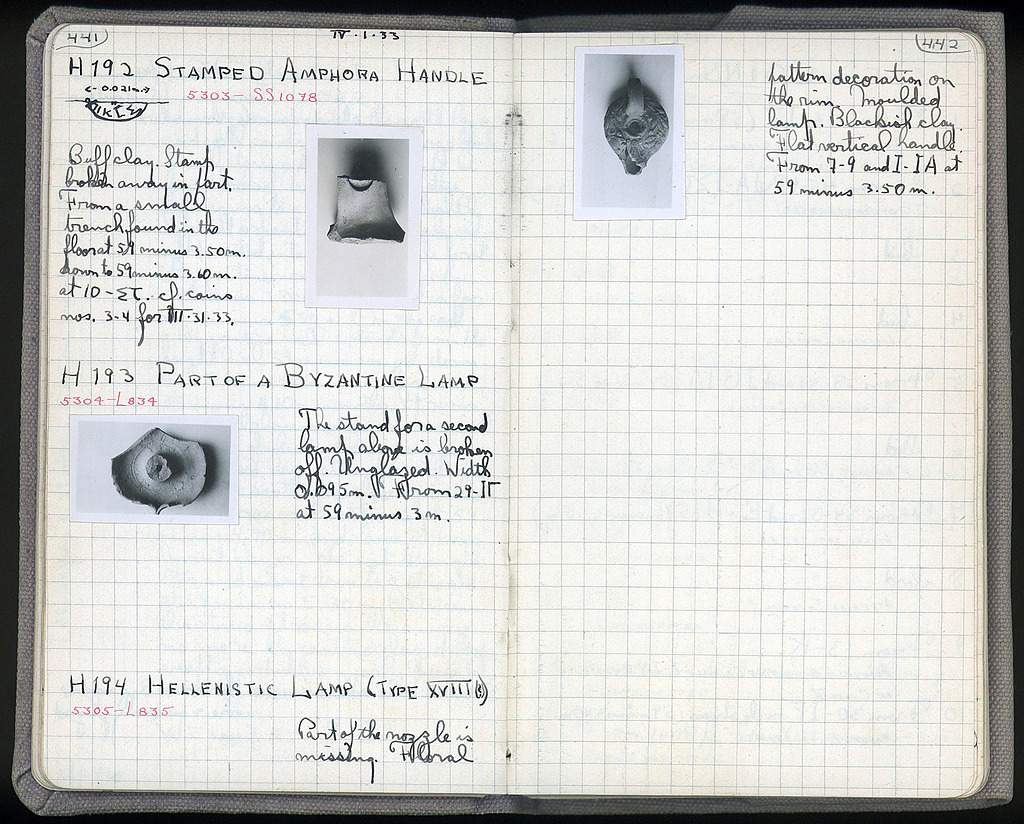 441
IV·1·33
H 192 STAMPED AMPHORA HANDLE
5303 - SS1078
<- 0.021m ->
Buff clay. Stamp
broken away in part.
From a small
trench found in the
floor at 59 minus 3.50m.
down to 59 minus 3.60m.
at 10-ΣΤ. cf. coins
nos. 3-4 for III·31·33.
H 193 PART OF A BYZANTINE LAMP
5304-L834
The stand for a second
lamp above is broken
off. Unglazed. Width
0.095m. From 29-IΓ
at 59 minus 3m.
H 194 HELLENISTIC LAMP (TYPE XVIII)
5305-L835
Part of the nozzle is
missing. Floral
442
pattern decoration on
the rim. Moulded
lamp. Blackish clay.
Flat vertical handle.
From 7-9 and I-IA at
59 minus 3.50m.